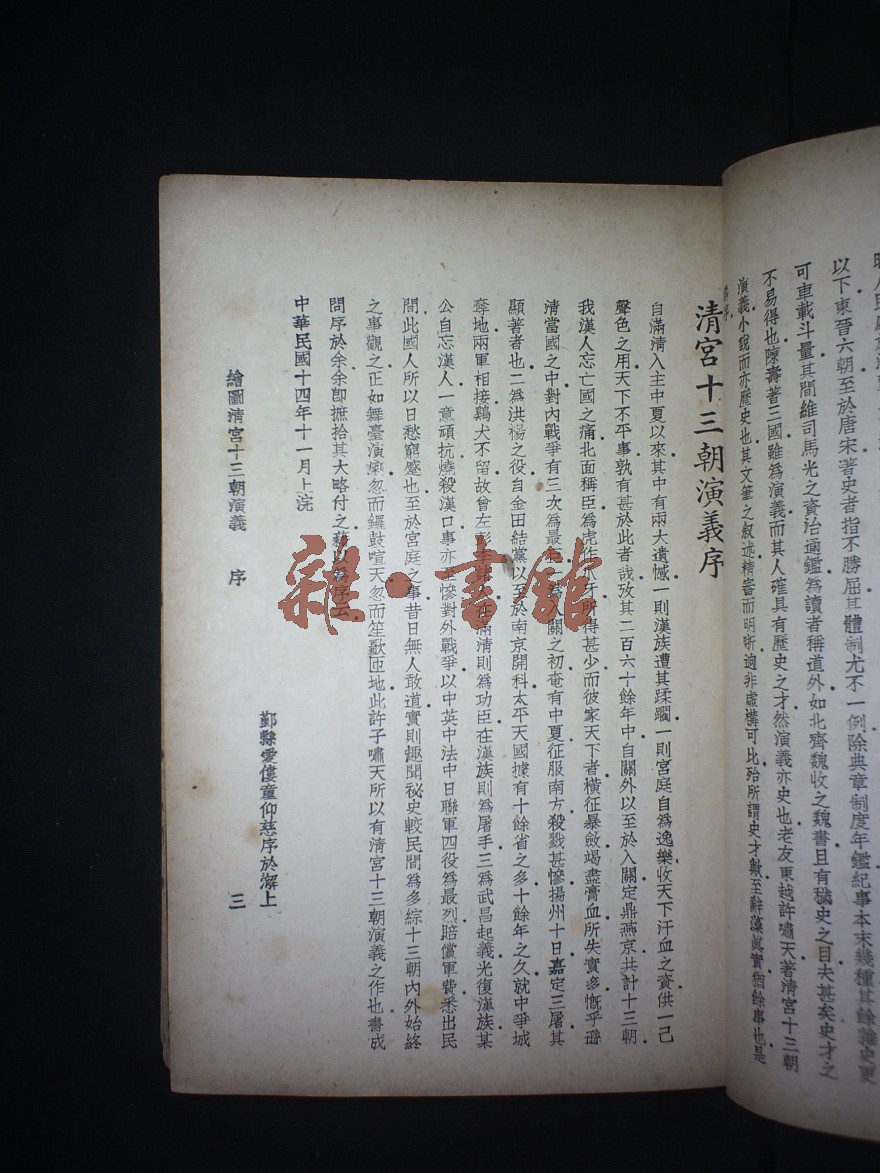 以下東晉六朝至於唐宋著史者指不勝屈其體制尤不一例除典章制度年鑑紀事本末幾種其餘雜史更
可車載斗量其間維司馬光之資治通鑑為讀者稱道外如北齊魏收之魏書且有穢史之目夫甚矣史才之
不易得也陳壽著三國雖為演義而其人確具有歷史之才然演義亦史也老友東越許嘯天著清宮十三朝
演義小說而亦歷史也其文筆之叙述精審而明晰適非虛構可比殆所謂史才歟至辭藻眞實猶餘事也是
清宮十三朝演義序
自滿清入主中夏以來其中有兩大遺憾一則漢族遭其蹂躪一則宮庭自為逸樂收天下汗血之資供一己
聲色之用天下不平事孰有甚於此者哉攷其二百六十餘年中自關外以至於入關定鼎燕京共計十三朝
我漢人忘亡國之痛北面稱臣為虎作爪牙所得甚少而彼家天下者橫征暴斂竭盡膏血所失實多慨乎
清當國之中對內戰爭有三次為最 為入關之初奄有中夏征服南方殺戮甚慘揚州十日嘉定三屠其
顯著者也二為洪楊之役自金田結黨以至於南京開科太平天國據有十餘省之多十餘年之久就中爭城
奪地兩軍相接鷄犬不留故曾左彭 人在滿清則為功臣在漢族則為屠手三為武昌起義光復漢族某
公自忘漢人一意頑抗燒殺漢口事亦至慘對外戰爭以中英中法中日聯軍四役為最烈賠償軍費悉出民
間此國人所以日愁窮蹙也至於宮庭之事昔日無人敢道實則趣聞祕史較民間為多綜十三朝內外始終
之事觀之正如舞臺演劇忽而鑼鼓喧天忽而笙歌匝地此許子嘯天所以有清宮十三朝演義之作也書成
問序於余余卽摭拾其大略付之藉以為序云
中華民國十四年十一月上浣
鄞縣愛僂童仰慈序於海上
繪圖清宮十三朝演義 序 三
雜·書館